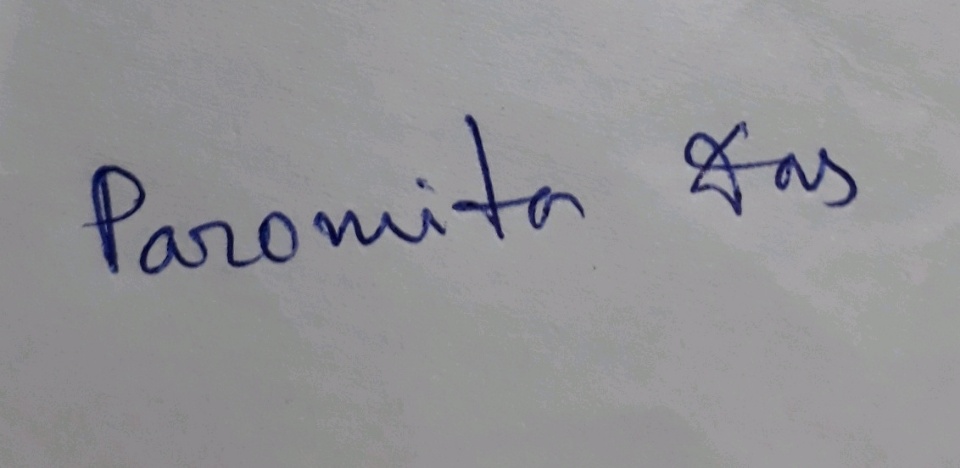 Paromita Das